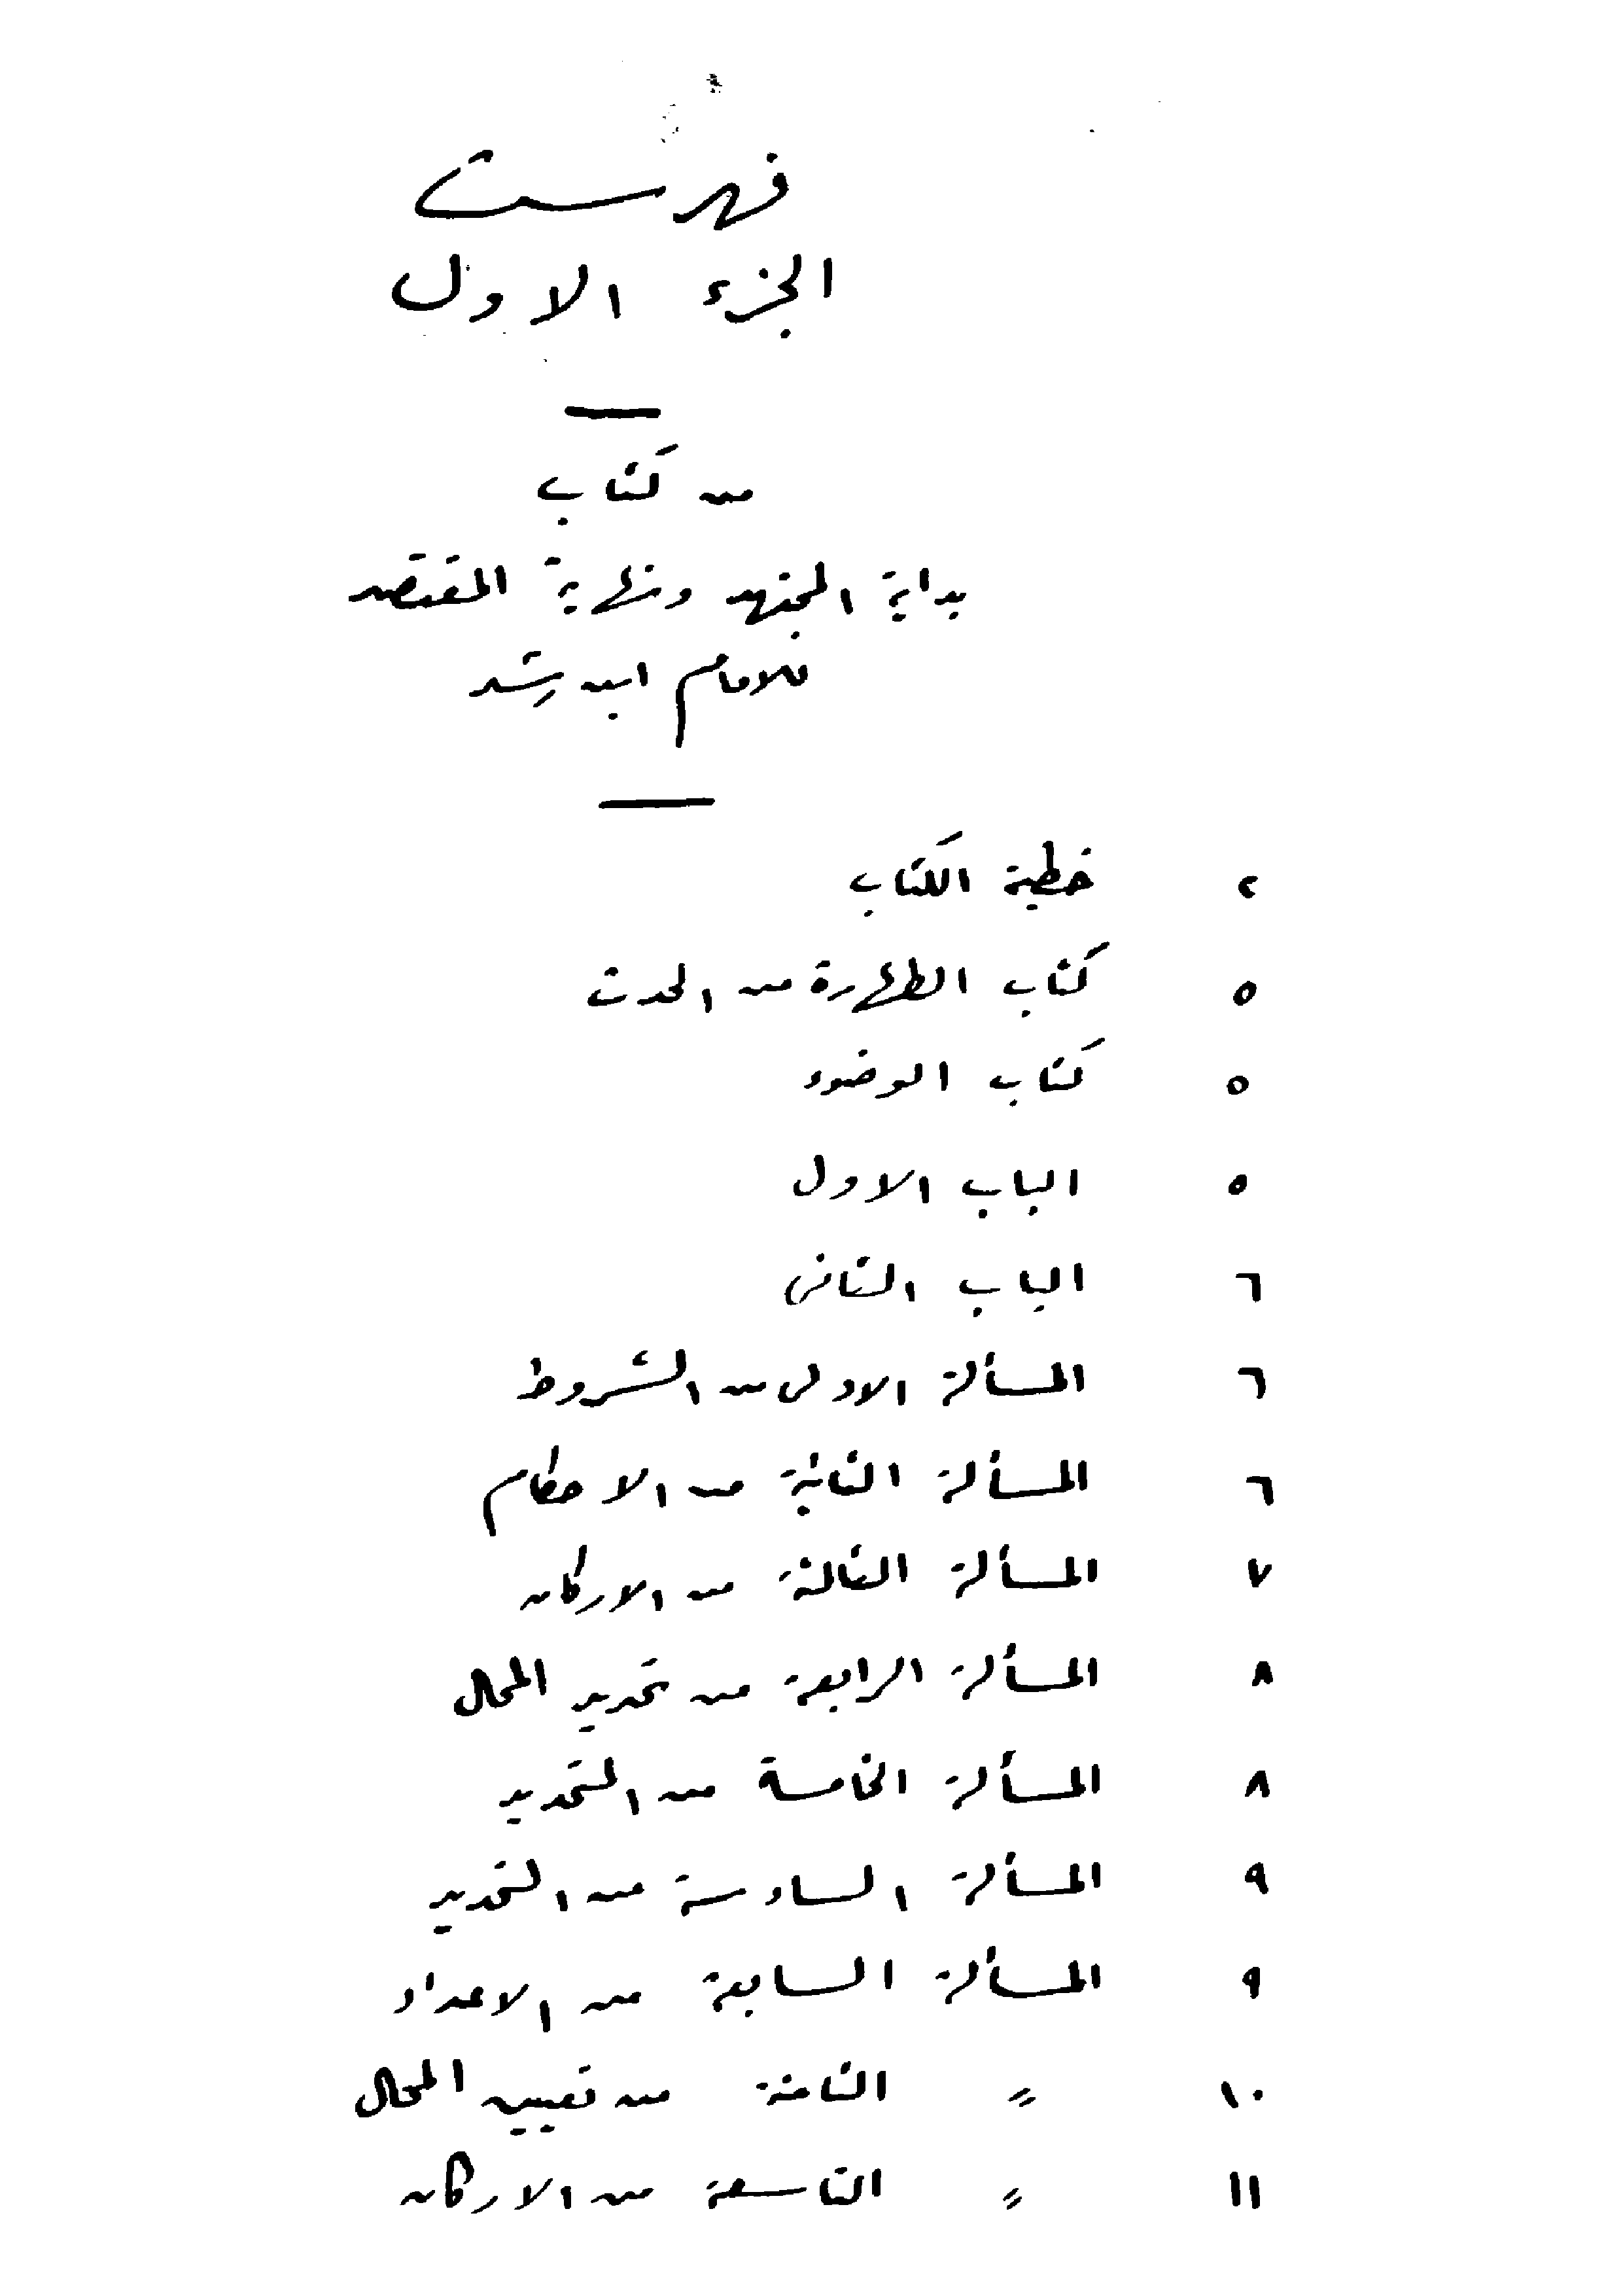 فهرست
الجزء الاول
من كتاب
بداية المجتهد ونهاية المقتصد
للامام ابن رشد
٢ خطبة الكتاب
٥ كتاب الطهارة من الحدث
٥ كتاب الوضوء
٥ الباب الاول
٦ الباب الثانى
٦ المسألة الاولى من الشروط
٦ المسألة الثانية من الاحكام
٧ المسألة الثالثة من الاركان
٨ المسألة الرابعة من تحديد المحال
٨ المسألة الخامسة من التحديد
٩ المسألة السادسة من التحديد
٩ المسألة السابعة من الاعداد
١٠ 〃 الثامنة من تعيين المحال
١١ 〃 التاسعة من الاركان